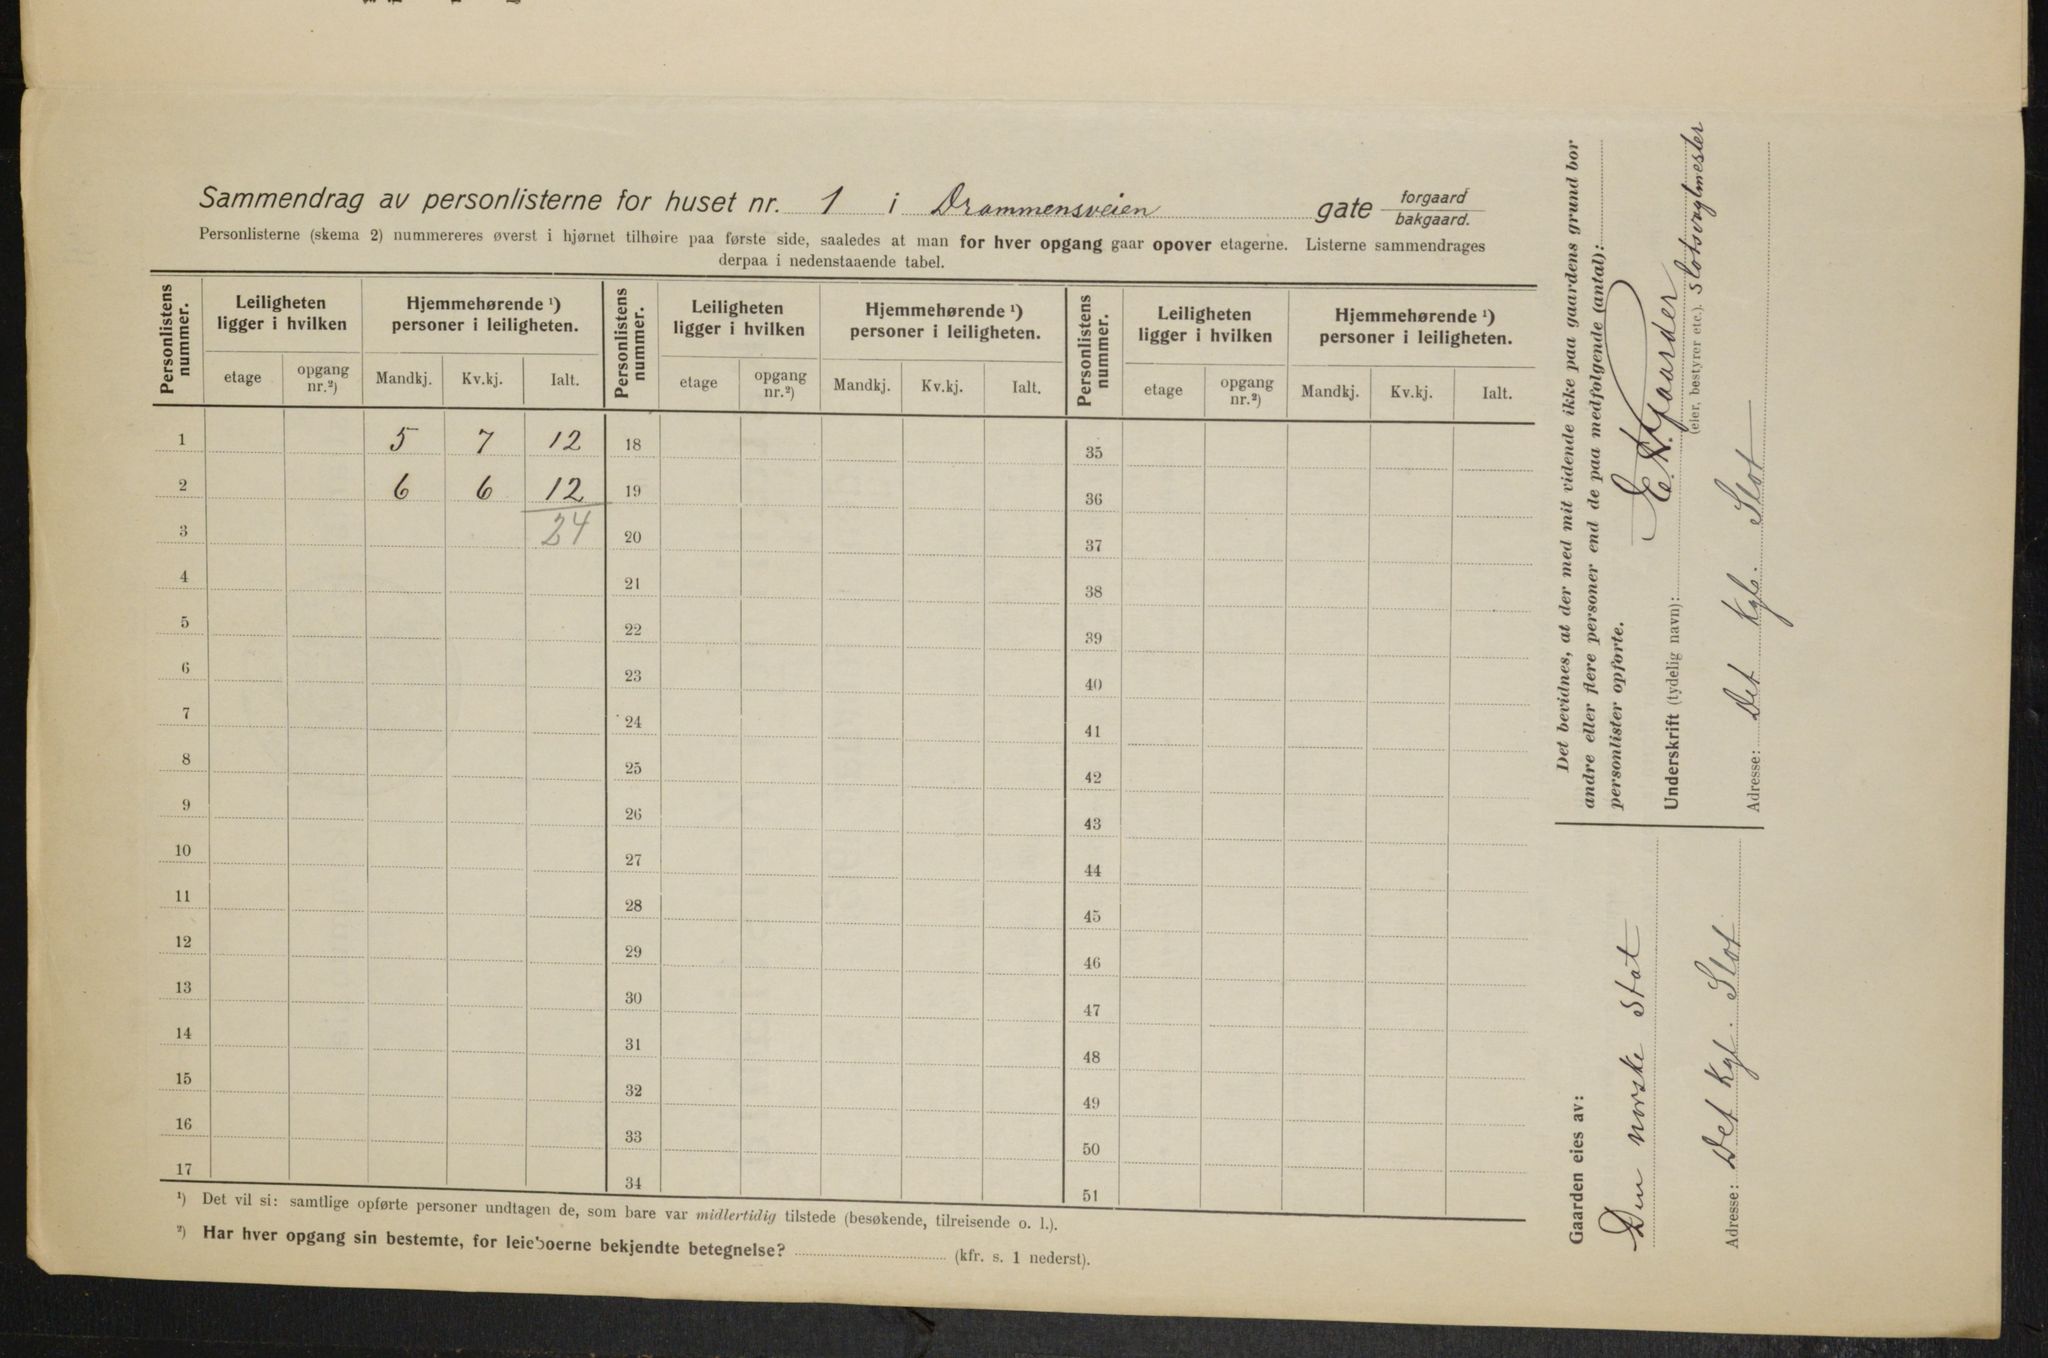 Sammendrag av personlisterne for huset nr. 1 i Drammensveien gate forgaard bakgaard.
Personlisterne (skema 2) nummereres øverst i hjørnet tilhøire paa første side, saaledes at man for hver opgang gaar opover etagerne. Listerne sammendrages
derpaa i nedenstaaende tabel.
Personlistens nummer. Leiligheten ligger i hvilken Hjemmehørende ¹) personer i leiligheten. Personlistens nummer. Leiligheten ligger i hvilken Hjemmehørende ¹) personer i leiligheten. Personlistens nummer. Leiligheten ligger i hvilken Hjemmehørende ¹) personer i leiligheten.
etage opgang nr.²) Mandkj. Kv.kj. Ialt. etage opgang nr.²) Mandkj. Kv.kj. Ialt. etage opgang nr.²) Mandkj. Kv.kj. Ialt.
1 5 7 12 18 35
2 6 6 12 19 36
3 24 20 37
4 21 38
5 22 39
6 23 40
7 24 41
8 25 42
9 26 43
10 27 44
11 28 45
12 29 46
13 30 47
14 31 48
15 32 49
16 33 50
17 34 51
¹) Det vil si: samtlige opførte personer undtagen de, som bare var midlertidig tilstede (besøkende, tilreisende o. l.).
²) Har hver opgang sin bestemte, for leieboerne bekjendte betegnelse? (kfr. s. 1 nederst).
Det bevidnes, at der med mit vidende ikke paa gaardens grund bor
andre eller flere personer end de paa medfølgende (antal):
personlister opførte.
Underskrift (tydelig navn):
(eier, bestyrer etc.). Slotsvagtmester
Adresse: Det Kgl. Slot
Gaarden eies av:
Den norske Stat
Adresse: Det Kgl. Slot.